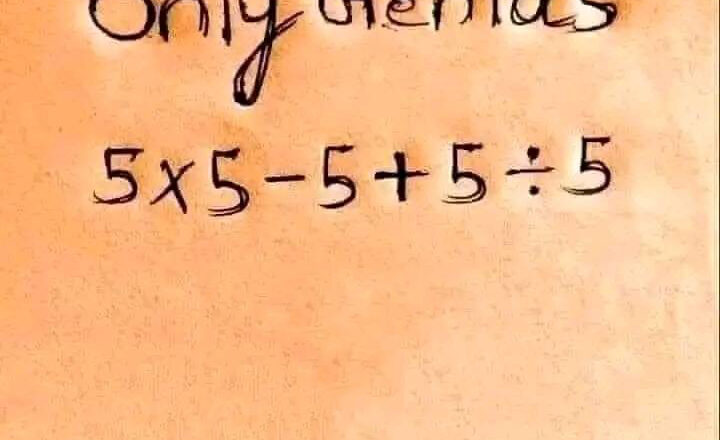 Only Genius
5×5-5+5÷5